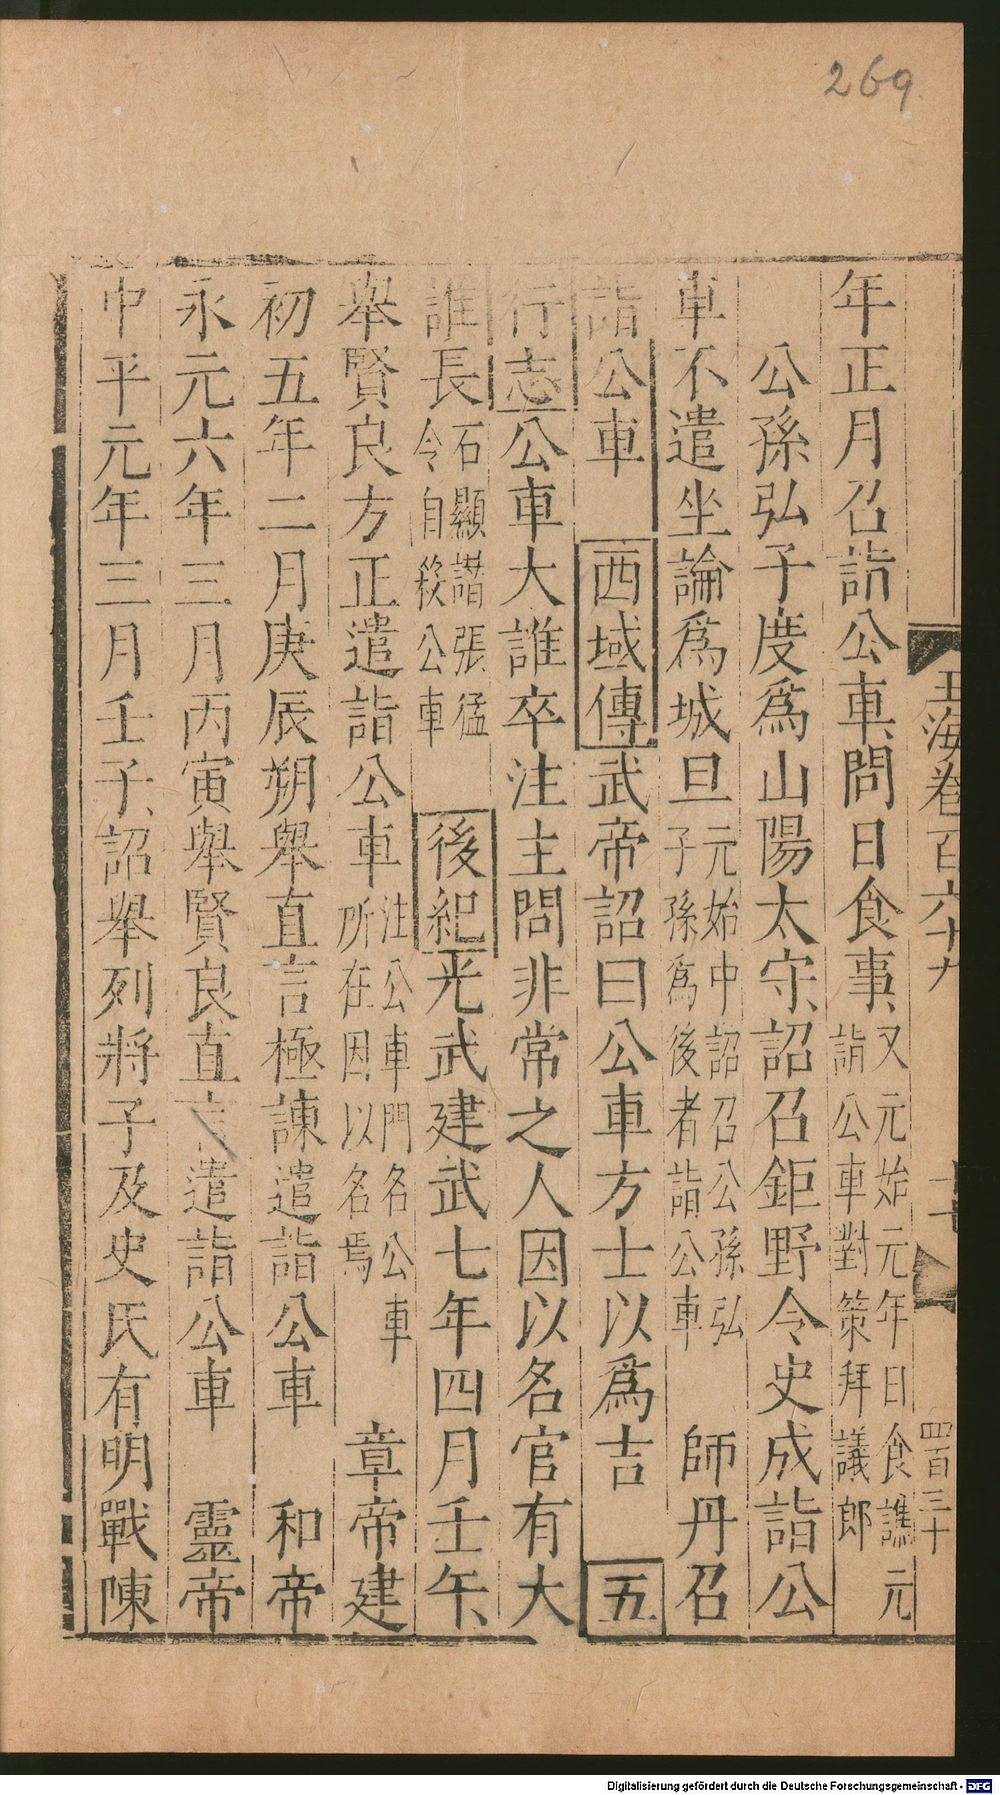 269
玉海卷百六十九
四百三十
年正月召詣公車問日食事又元始元年日食譙元詣公車對策拜議郎
公孫弘子度爲山陽太守詔召鉅野令史成詣公
車不遣坐論爲城旦元始中詔召公孫弘子孫爲後者詣公車 師丹召
詣公車 西域傳武帝詔曰公車方士以爲吉 五
行志公車大誰卒注主問非常之人因以名官有大
誰長石顯譖張猛令自殺公車 後紀光武建武七年四月壬午
舉賢良方正遣詣公車注公車門名公車所在因以名焉 章帝建
初五年二月庚辰朔舉直言極諫遣詣公車 和帝
永元六年三月丙寅舉賢良直遣詣公車 靈帝
中平元年三月壬子詔舉列將子及史民有明戰陳
Digitalisierung gefördert durch die Deutsche Forschungsgemeinschaft - DFG